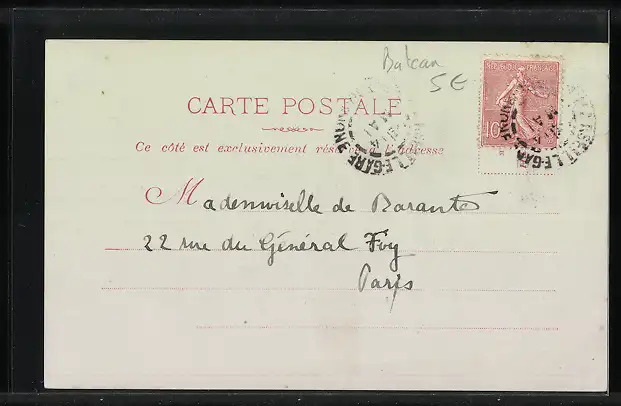 Balcan
5 €
REPUBLIQUE FRANÇAISE
10
CARTE POSTALE
Ce côté est exclusivement réservé à l'adresse
Mademoiselle de Barante
22 rue du Général Foy
Paris